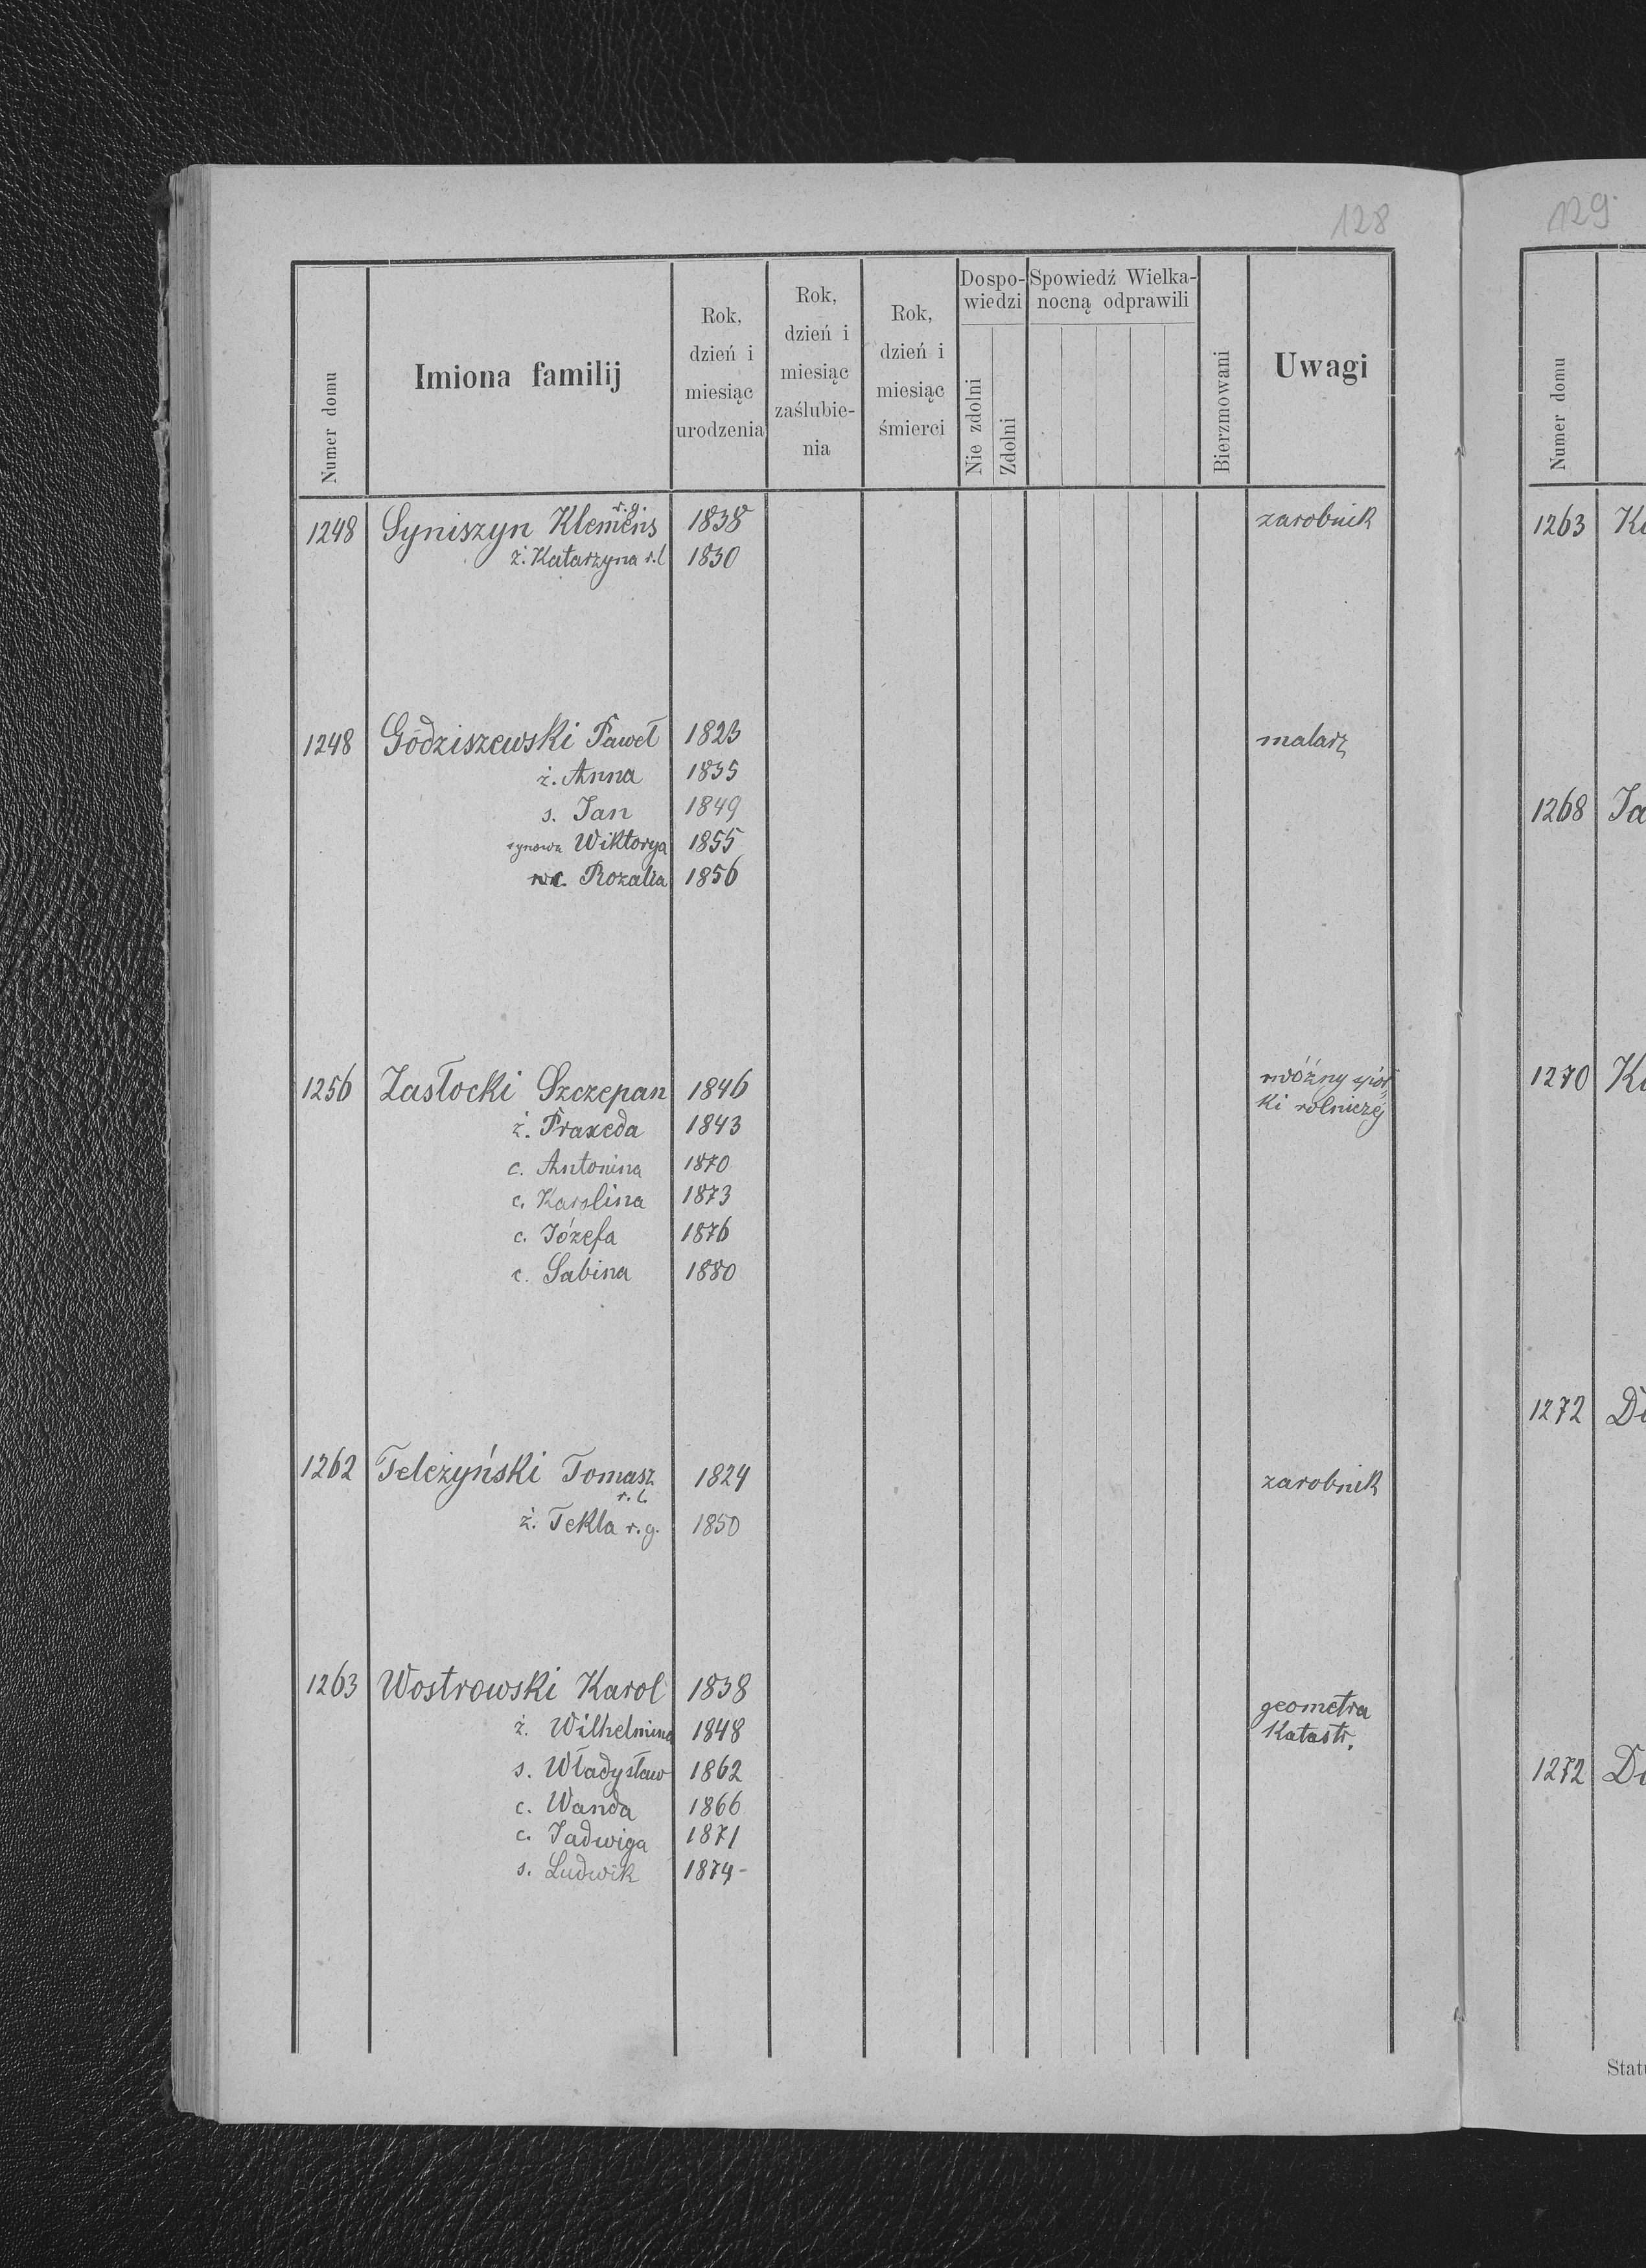 128
Numer domu
Imiona familij
Rok, dzień i miesiąc urodzenia
Rok, dzień i miesiąc zaślubie-nia
Rok, dzień i miesiąc śmierci
Dospo-wiedzi
Nie zdolni
Zdolni
Spowiedź Wielka-nocną odprawili
Bierzmowani
Uwagi
1248 Syniszyn Klemens r.g. 1838 zarobnik
ż. Katarzyna r.l 1830
1248 Godziszewski Paweł 1823 malarz
ż. Anna 1835
s. Jan 1849
synowa Wiktorya 1855
Rozalia 1856
1256 Zasłocki Szczepan 1846 woźny spół
ż. Praxeda 1843 ki rolniczej
c. Antonina 1870
c. Karolina 1873
c. Józefa 1876
c. Sabina 1880
1262 Telezyński Tomasz 1824 zarobnik
r.l.
ż. Tekla r.g. 1850
1263 Wostrowski Karol 1838 geometra
ż. Wilhelmina 1848 Katastr.
s. Władysław 1862
c. Wanda 1866
c. Jadwiga 1871
s. Ludwik 1874-
129
Numer domu
1263
1268
1270
1272
1272